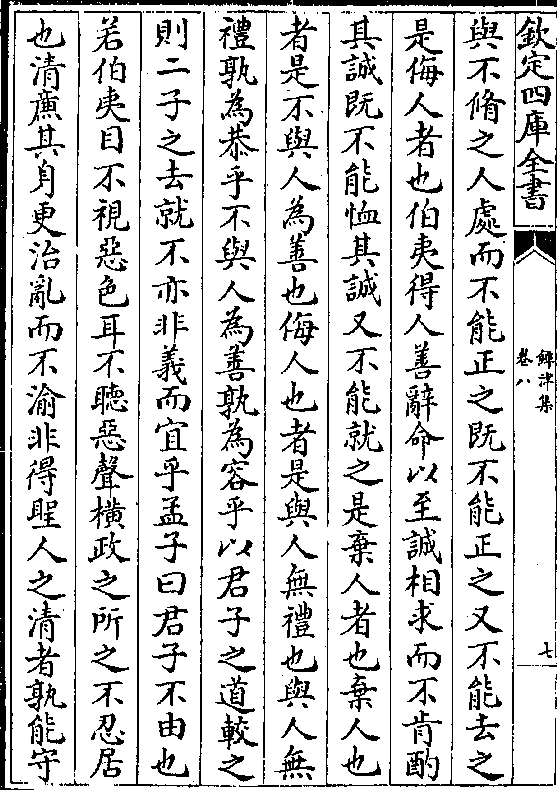 欽定四庫全書
鐔津集
卷八
七
與不脩之人處而不能正之既不能正之又不能去之
是侮人者也伯夷得人善辭命以至誠相求而不肯酌
其誠既不能恤其誠又不能就之是棄人者也棄人也
者是不與人為善也侮人也者是與人無禮也與人無
禮孰為恭乎不與人為善孰為容乎以君子之道較之
則二子之去就不亦非義而宜乎孟子曰君子不由也
若伯夷目不視惡色耳不聽惡聲橫政之所之不忍居
也清廉其身更治亂而不渝非得聖人之清者孰能守